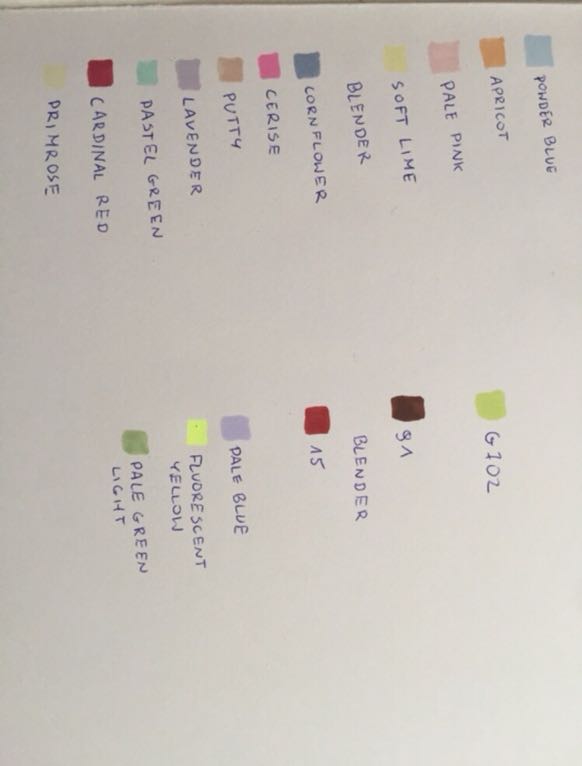 POWDER BLUE
APRICOT
PALE PINK
SOFT LIME
BLENDER
CORNFLOWER
CERISE
PUTTY
LAVENDER
PASTEL GREEN
CARDINAL RED
PRIMROSE
G202
91
BLENDER
15
PALE BLUE
FLUORESCENT
YELLOW
PALE GREEN
LIGHT